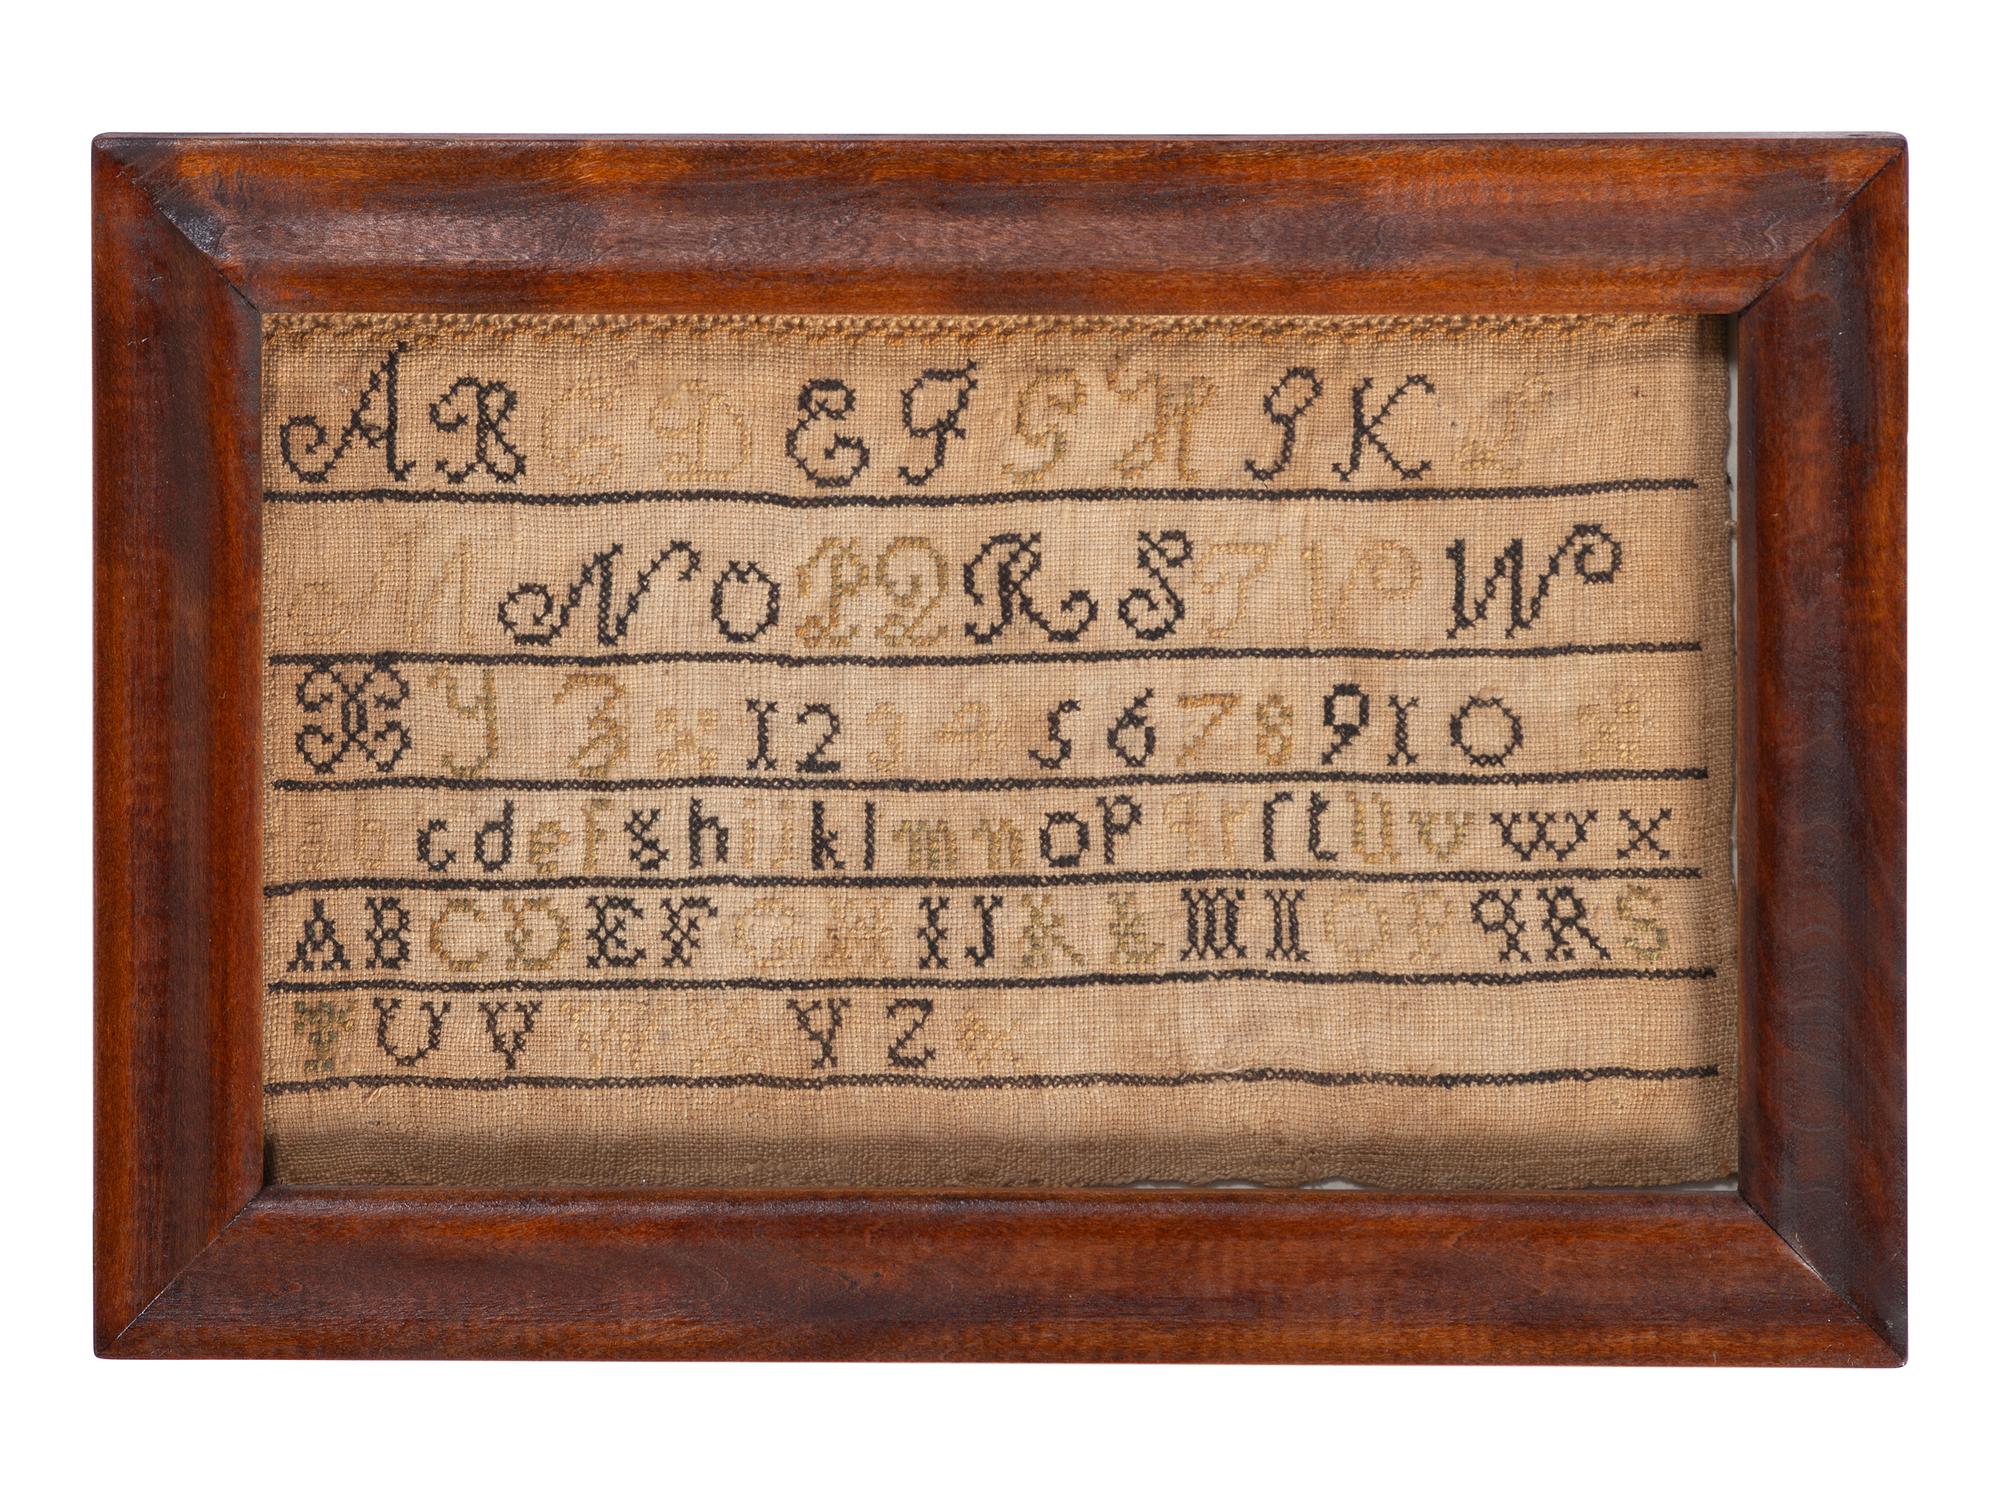 A B C D E F G H I K L
M N O P Q R S T V W
X Y Z & 1 2 3 4 5 6 7 8 9 10 &
a b c d e f g h i j k l m n o p q r ſ t u v w x
A B C D E F G H I J K L M N O P Q R S
T U V W X Y Z &